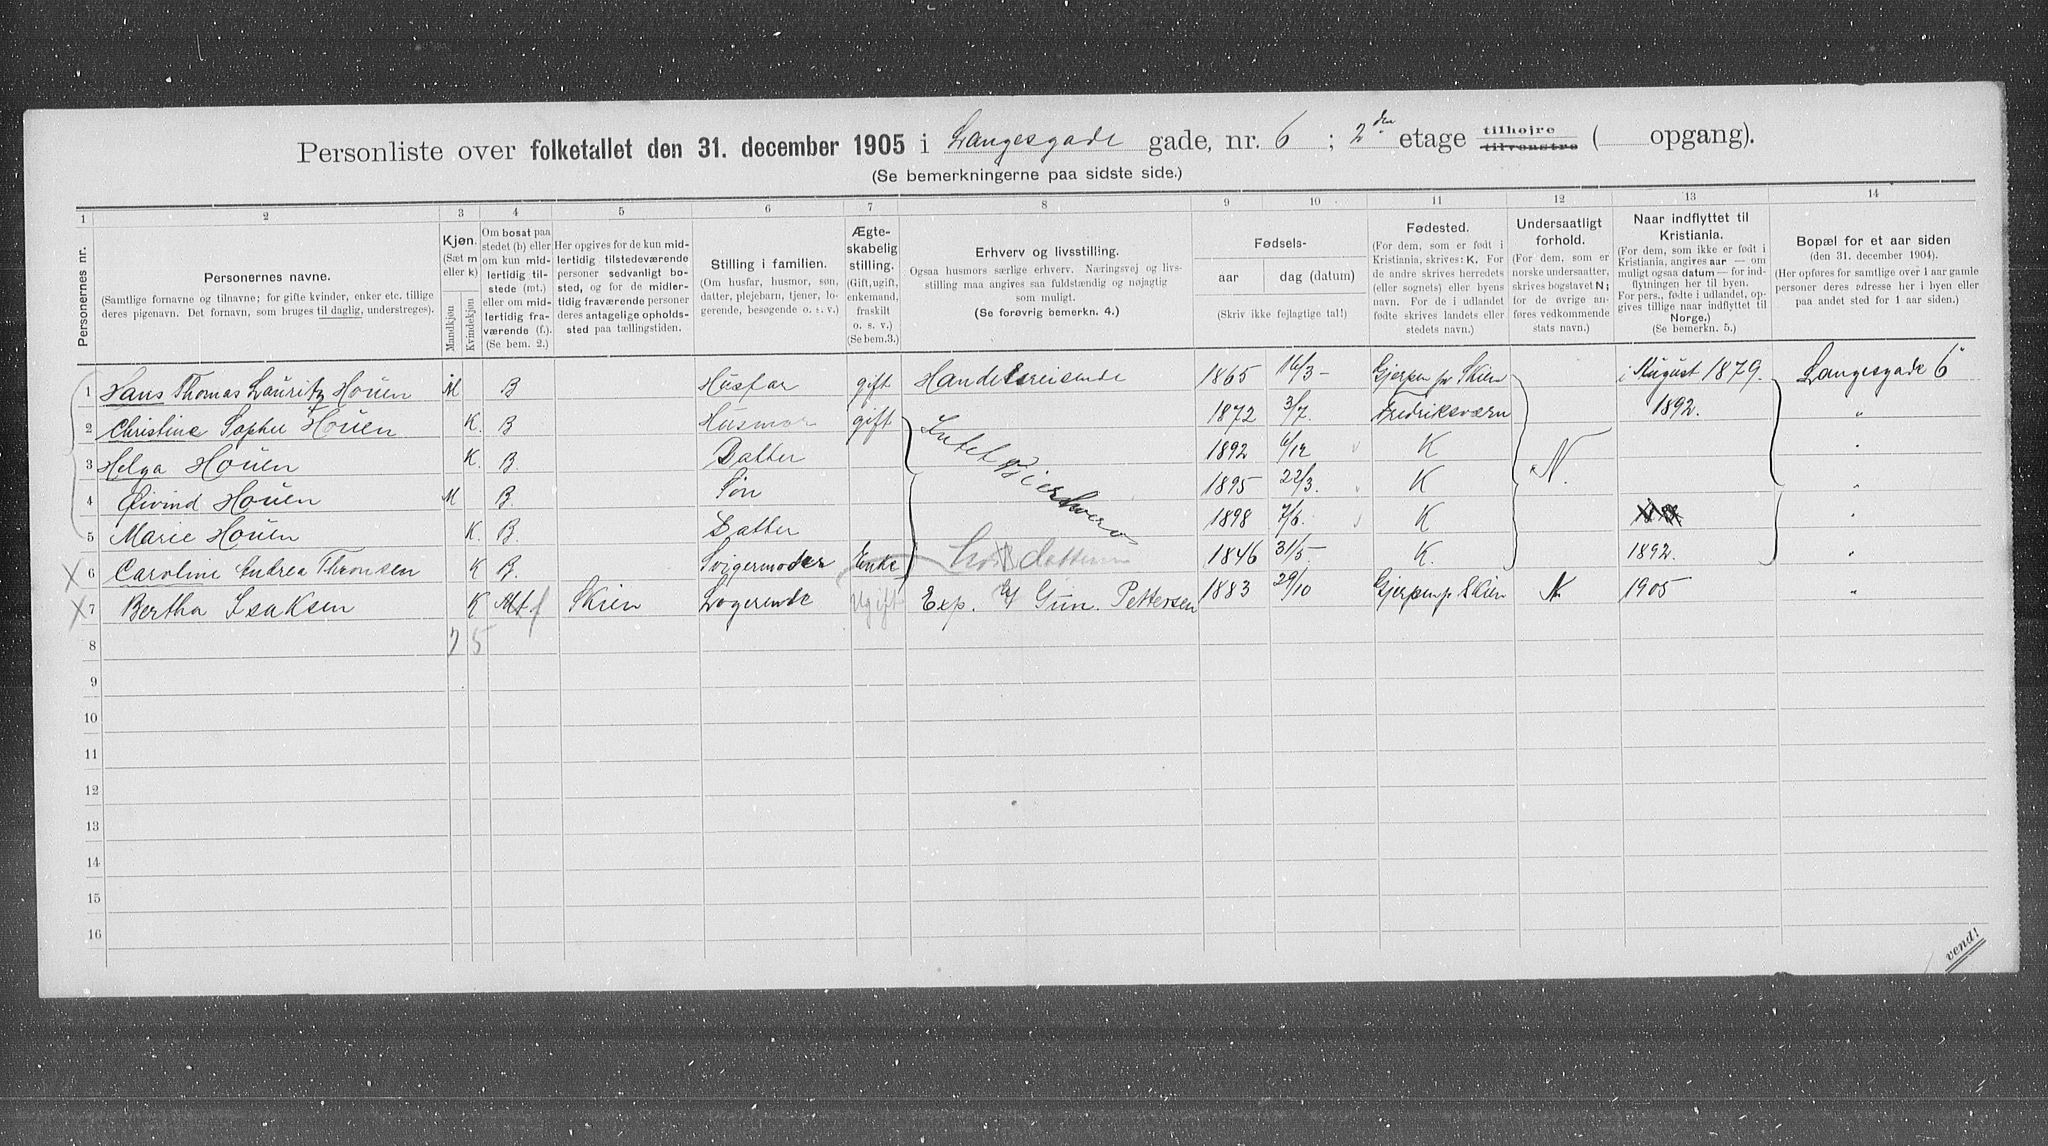 Personliste over folketallet den 31. december 1905 i Langesgade gade, nr. 6 ; 2den etage tilhøjre tilvenstre ( opgang).
(Se bemerkningerne paa sidste side.)
1 2 3 4 5 6 7 8 9 10 11 12 13 14
Personernes nr.
Personernes navne.
(Samtlige fornavne og tilnavne; for gifte kvinder, enker etc. tillige
deres pigenavn. Det fornavn, som bruges til daglig, understreges).
Kjøn.
(Sæt m
eller k)
Mandkjøn
Kvindekjøn
Om bosat paa
stedet (b) eller
om kun mid-
lertidig til-
stede (mt.)
eller om mid-
lertidig fra-
værende (f.).
(Se bem. 2.)
Her opgives for de kun mid-
lertidig tilstedeværende
personer sedvanligt bo-
sted, og for de midler-
tidig fraværende personer
deres antagelige opholds-
sted paa tællingstiden.
Stilling i familien.
(Om husfar, husmor, søn,
datter, plejebarn, tjener, lo-
gerende, besøgende o. s. v.)
Ægte-
skabelig
stilling.
(Gift, ugift,
enkemand,
fraskilt
o. s. v.)
(Se bem.3.)
Erhverv og livsstilling.
Ogsaa husmors særlige erhverv. Næringsvej og livs-
stilling maa angives saa fuldstændig og nøjagtig
som muligt.
(Se forøvrig bemerkn. 4.)
Fødsels-
aar dag (datum)
(Skriv ikke fejlagtige tal!)
Fødested.
(For dem, som er født i
Kristiania, skrives: K. For
de andre skrives herredets
(eller sognets) eller byens
navn. For de i udlandet
fødte skrives landets eller
stedets navn.)
Undersaatligt
forhold.
(For dem, som er
norske undersaatter,
skrives bogstavet N;
for de øvrige an-
føres vedkommende
stats navn.)
Naar indflyttet til
Kristiania.
(For dem, som ikke er født i
Kristiania, angives aar — om
muligt ogsaa datum — for ind-
flytningen her til byen.
For pers., fødte i udlandet, op-
gives tillige naar indflyttet til
Norge.)
(Se bemerkn. 5.)
Bopæl for et aar siden
(den 31. december 1904).
(Her opføres for samtlige over 1 aar gamle
personer deres adresse her i byen eller
paa andet sted for 1 aar siden.)
1 Hans Thomas Lauritz Houen M B Husfar gift Handelsreisende 1865 16/3 Gjerpen pr Skien i August 1879. Langesgade 6
2 Christine Sophie Houen K. B Husmor gift Intet Erhverv 1872 3/7. Fredriksværn 1892. "
3 Helga Houen K. B Datter 1892 6/12 K N. "
4 Øivind Houen M B. Søn 1895 22/3. K "
5 Marie Houen K. B. Datter 1898 7/6. K "
6 Caroline Andrea Thronsen K B. Svigermoder Enke hos datteren 1846 31/5 K. 1892. "
7 Bertha Isaksen K Mt. f Skien Logerende Ugift Exp. Gun. Pettersen 1883 29/10 Gjerpen p. Skien N 1905 "
8 2 5
9
10
11
12
13
14
15
16
vend!